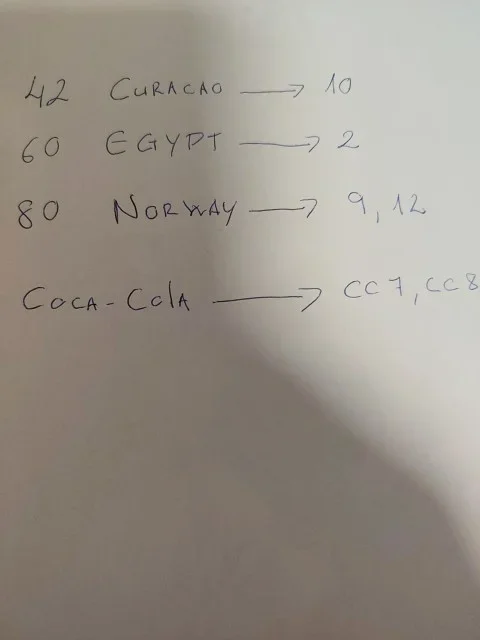 42 CURACAO → 10
60 EGYPT → 2
80 NORWAY → 9, 12
COCA-COlA → CC7, CC8